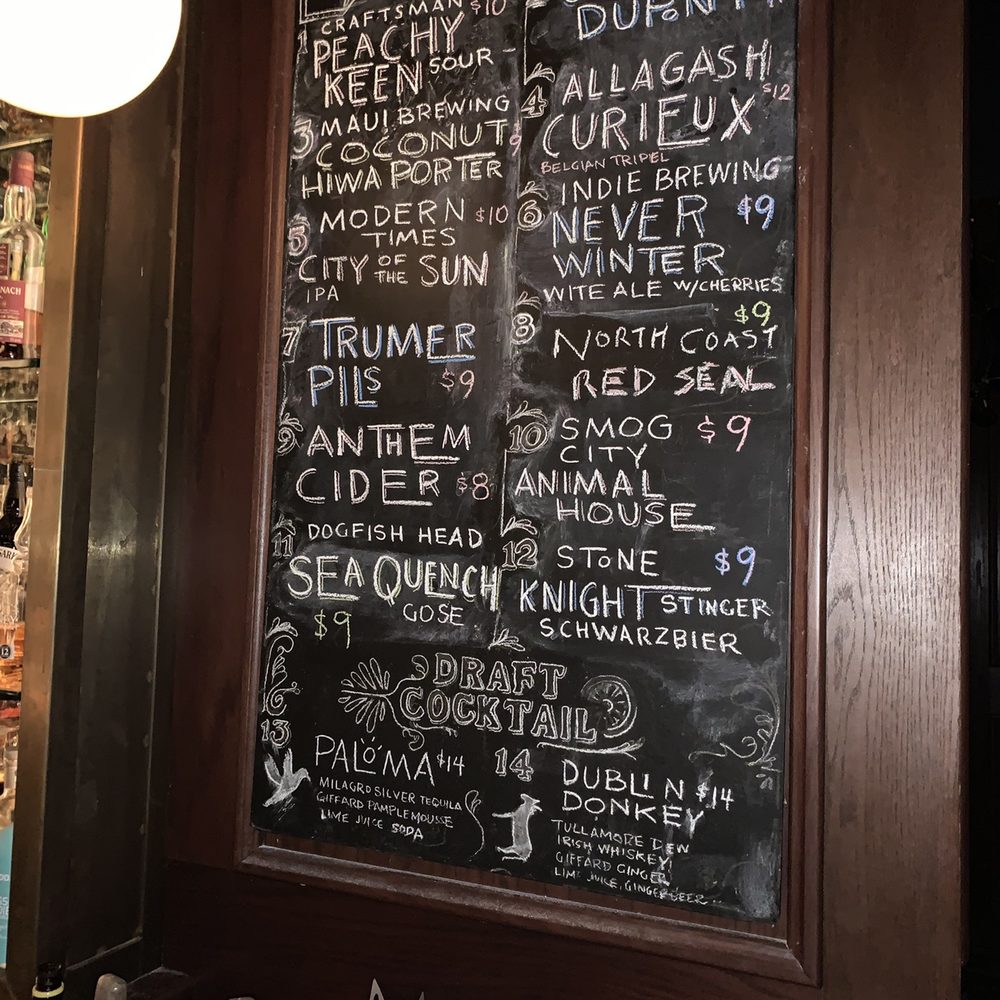 1
CRAFTSMAN $10
PEACHY
KEEN SOUR
3
MAUI BREWING
COCONUT
HIWA PORTER
5
MODERN $10
TIMES
CITY OF THE SUN
IPA
7
TRUMER
PILS $9
9
ANTHEM
CIDER $8
11
DOGFISH HEAD
SEA QUENCH
GOSE
$9
DUPONT
4
ALLAGASH
$12
CURIEUX
BELGIAN TRIPEL
6
INDIE BREWING
NEVER $9
WINTER
WITE ALE W/CHERRIES
$9
8
NORTH COAST
RED SEAL
10
SMOG $9
CITY
ANIMAL
HOUSE
12
STONE $9
KNIGHT STINGER
SCHWARZBIER
DRAFT
COCKTAIL
13
PALOMA $14
MILAGRO SILVER TEQUILA
GIFFARD PAMPLEMOUSSE
LIME JUICE SODA
14
DUBLIN $14
DONKEY
TULLAMORE DEW
IRISH WHISKEY
GIFFARD GINGER
LIME JUICE, GINGER BEER
12